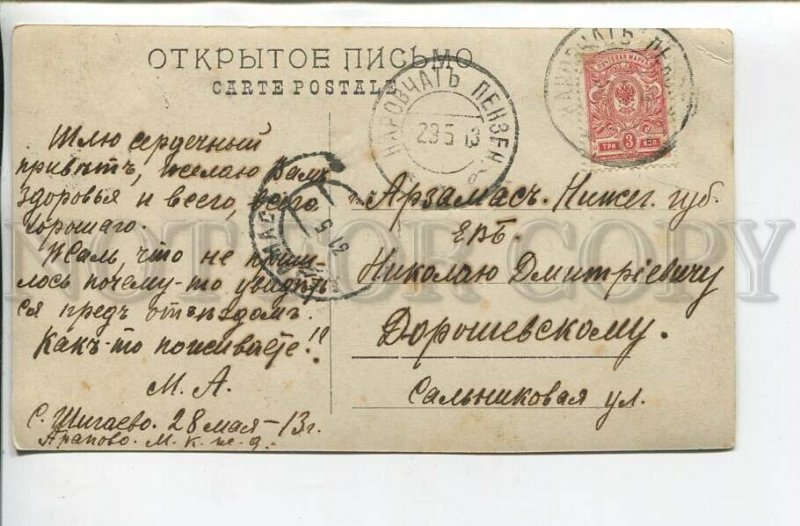 ОТКРЫТОЕ ПИСЬМО
CARTE POSTALE
НАРОВЧАТЪ ПЕНЗЕН
29 5 13
НАРОВЧАТЪ ПЕНЗЕН
ТРИ 3 КОП
Шлю сердечный
привѣтъ, желаю Вамъ
здоровья и всего, всего
хорошаго.
Жаль, что не приш-
лось почему-то увидѣть
ся предъ отъѣздомъ.
Какъ-то поживаете!?
М. А.
С. Шигаево. 28 мая-13 г.
Арапово. М. К. ж. д.
г. Арзамасъ. Нижег. губ.
ЕВБ.
Николаю Дмитріевичу
Дорошевскому.
Сальниковая ул.
31 5
NOT FOR COPY